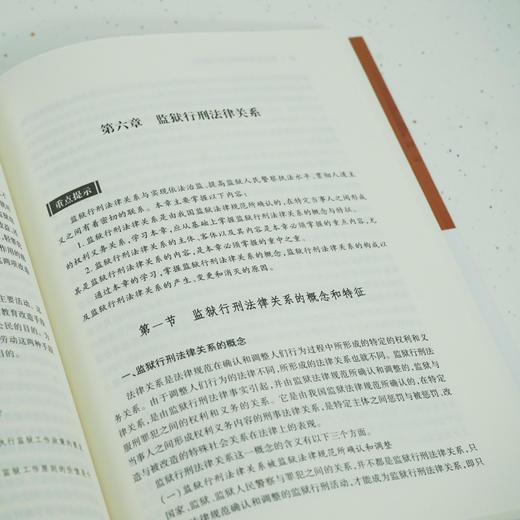 第六章 监狱行刑法律关系
重点提示
监狱行刑法律关系与实现依法治监、提高监狱人民警察执法水平、贯彻人道主
义之间有着密切的联系。本章主要掌握以下内容:
1.监狱行刑法律关系是由我国监狱法律规范所确认的,在特定当事人之间形成
的权利义务关系,学习本章,应从基础上掌握监狱行刑法律关系的概念与特征。
2.监狱行刑法律关系的主体、客体以及其内容是本章必须掌握的重点内容,尤
其是监狱行刑法律关系的内容,是本章必须掌握的重中之重。
通过本章的学习,掌握监狱行刑法律关系的概念,监狱行刑法律关系的构成以
及监狱行刑法律关系的产生、变更和消灭的原因。
第一节 监狱行刑法律关系的概念和特征
一、监狱行刑法律关系的概念
法律关系是法律规范在确认和调整人们行为过程中所形成的特定的权利和义
务关系。由于调整人们行为的法律不同,所形成的法律关系也就不同。监狱行刑法
律关系,是由监狱行刑法律事实引起,并由监狱法律规范所确认和调整的,监狱与
服刑罪犯之间的权利和义务的关系。它是由我国监狱法律规范所确认的,在特定
当事人之间形成权利义务内容的刑事法律关系,是特定主体之间惩罚与被惩罚、改
造与被改造的特殊社会关系在法律上的表现。
监狱行刑法律关系这一概念的含义有以下三个方面。
(一)监狱行刑法律关系被监狱法律规范所确认和调整
国家、监狱、监狱人民警察与罪犯之间的关系,并不都是监狱行刑法律关系,只
法律规范确认和调整的监狱行刑活动,才能成为监狱行刑法律关系,即只
主要活动。义
教育改造手段
公民的目的。
劳动这两种手段
目的。